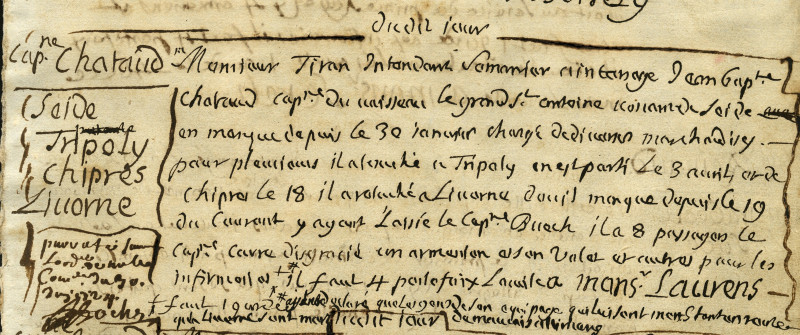 dudit jour
Cap.ne Chataud
Seide
Tripoly
Chipres
Livorne
Monsieur Tiran Intendant Semanier a interrogé Jean Bap.te
Chataud cap.ne du vaisseau le grand S.t antoine venant de Seide
en manque depuis le 30 janvier chargé de diverses marchandises
pour plusieurs il a touché a Tripoly en est parti le 3 avril et de
Chipres le 18 il a relaché a Livorne d'ou il manque depuis le 19
du Courant y ayant Laissé le Cap.ne Buech il a 8 passagers le
cap.ne Carre un armenien et son valet et autres pour les
infirmeries il faut 4 portefaix a mons.r Laurens
declare que les gens de son equipage qui luy sont morts tant en route
qu'a Livorne sont morts de mauvais alimens